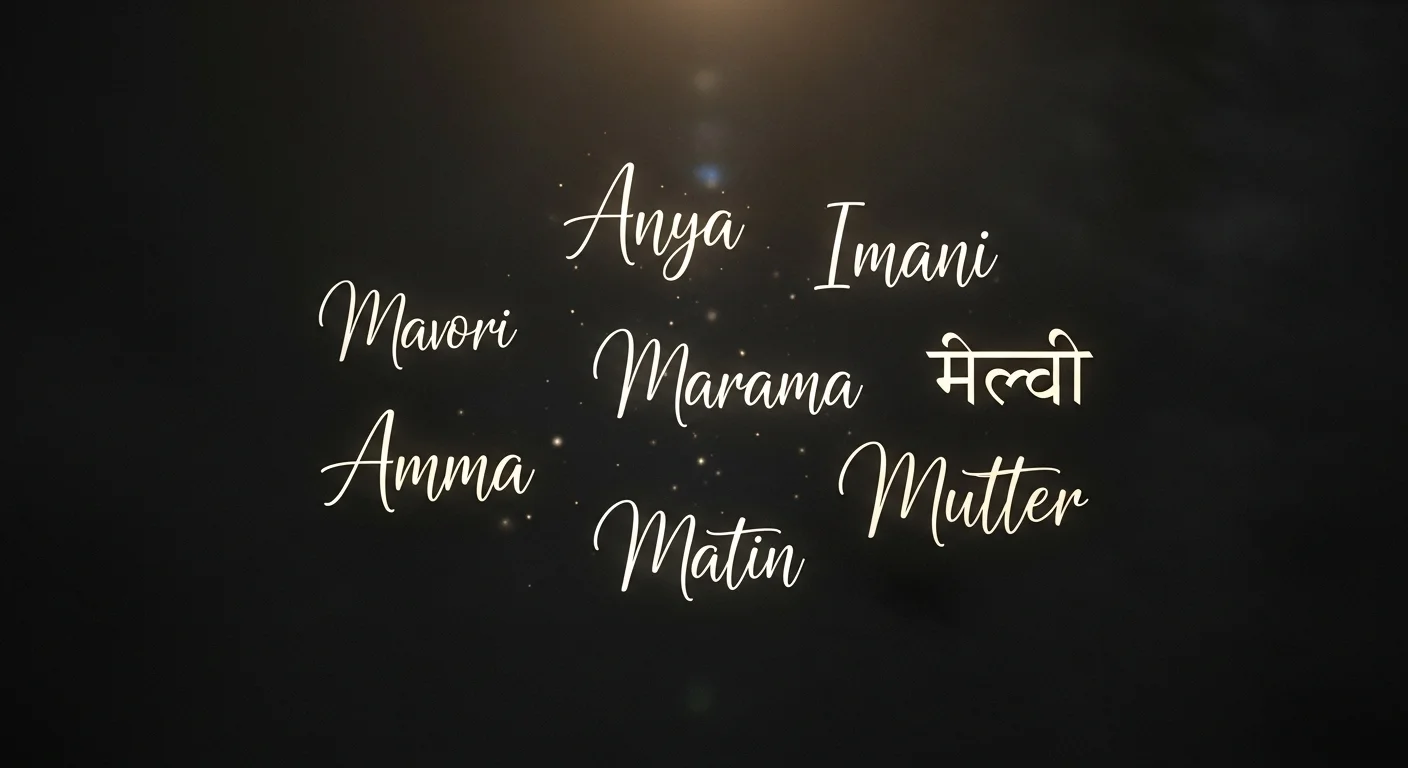 Anya
Imani
Mavori
Marama
मेल्वी
Amma
Mutter
Matin